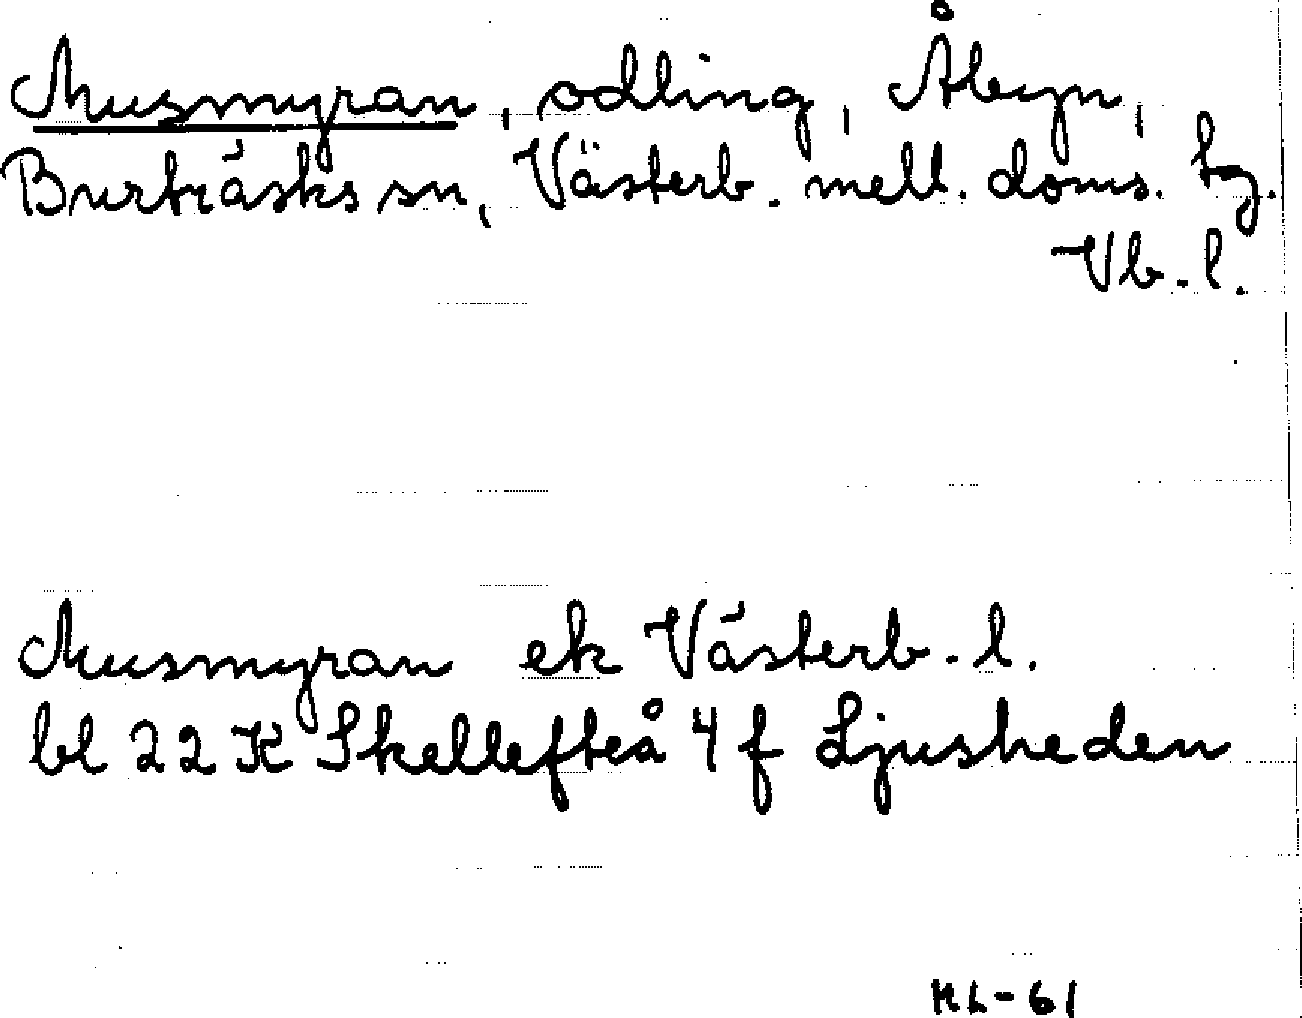 Musmyran, odling, Åbyn,
Burträsks sn, Västerb. mell. doms. tg.
Vb. l.
Musmyran ek Västerb. l.
bl 22 K Skellefteå 4 f Ljusheden
ML-61